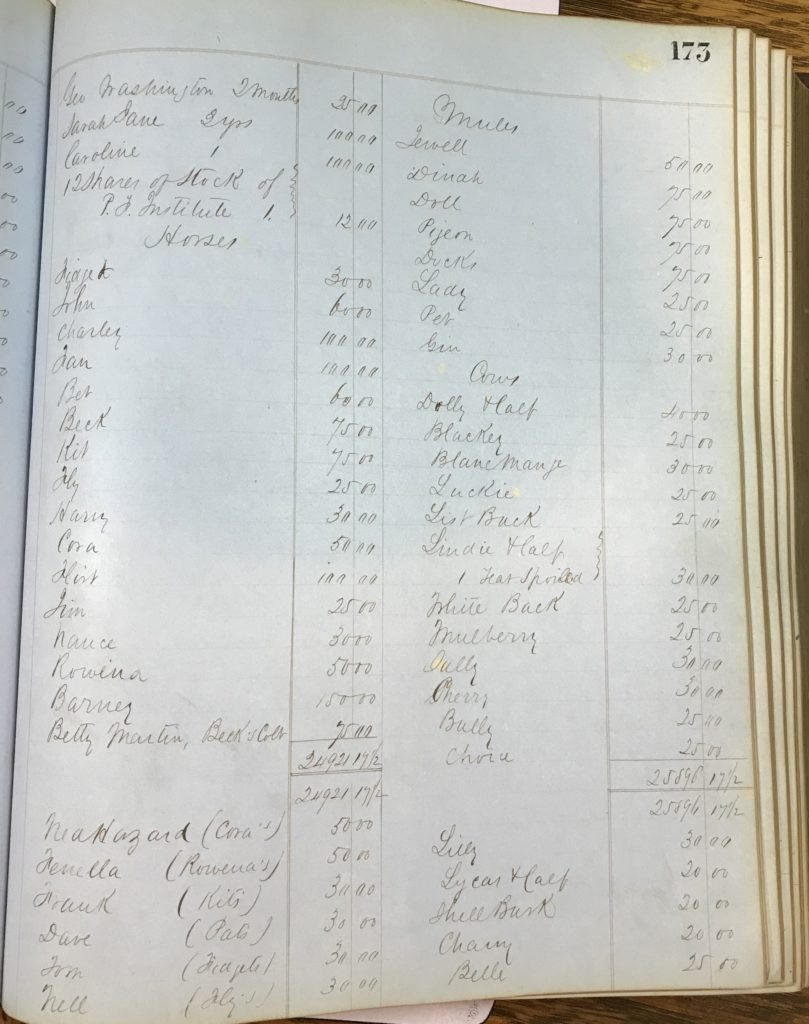 173
Geo Washington 2 Months 25 00
Sarah Jane 3 yrs 100 00
Caroline 1 100 00
12 Shares of Stock of
P. F. Institute 1. 12 00
Horses
Fidget 30 00
John 60 00
Charley 100 00
Fan 100 00
Bet 60 00
Beck 75 00
Kit 75 00
Fly 25 00
Harry 30 00
Cora 50 00
Flirt 100 00
Jim 25 00
Nance 30 00
Rowena 50 00
Barney 150 00
Betty Martin, Beck's Colt 75 00
24921 17 1/2
24921 17 1/2
Ned Hazard (Cora's) 50 00
Fenella (Rowena's) 50 00
Frank (Kits) 30 00
Dave (Pats) 30 00
Tom (Fidgets) 30 00
Nell (Fly's) 30 00
Mules
Jewell
Dinah 50 00
Doll 75 00
Pigeon 75 00
Ducks 75 00
Lady 75 00
Pet 25 00
Gin 25 00
30 00
Cows
Dolly & Calf 40 00
Blackey 25 00
Blanc Mange 30 00
Luckie 25 00
List Back 25 00
Lindie & Calf
1 Teat Spoiled 30 00
White Back 25 00
Mulberry 25 00
Sally 30 00
Cherry 30 00
Bully 25 00
25 00
25896 17 1/2
25896 17 1/2
Lily 30 00
& Calf 20 00
Shell Bark 20 00
20 00
Belle 25 00